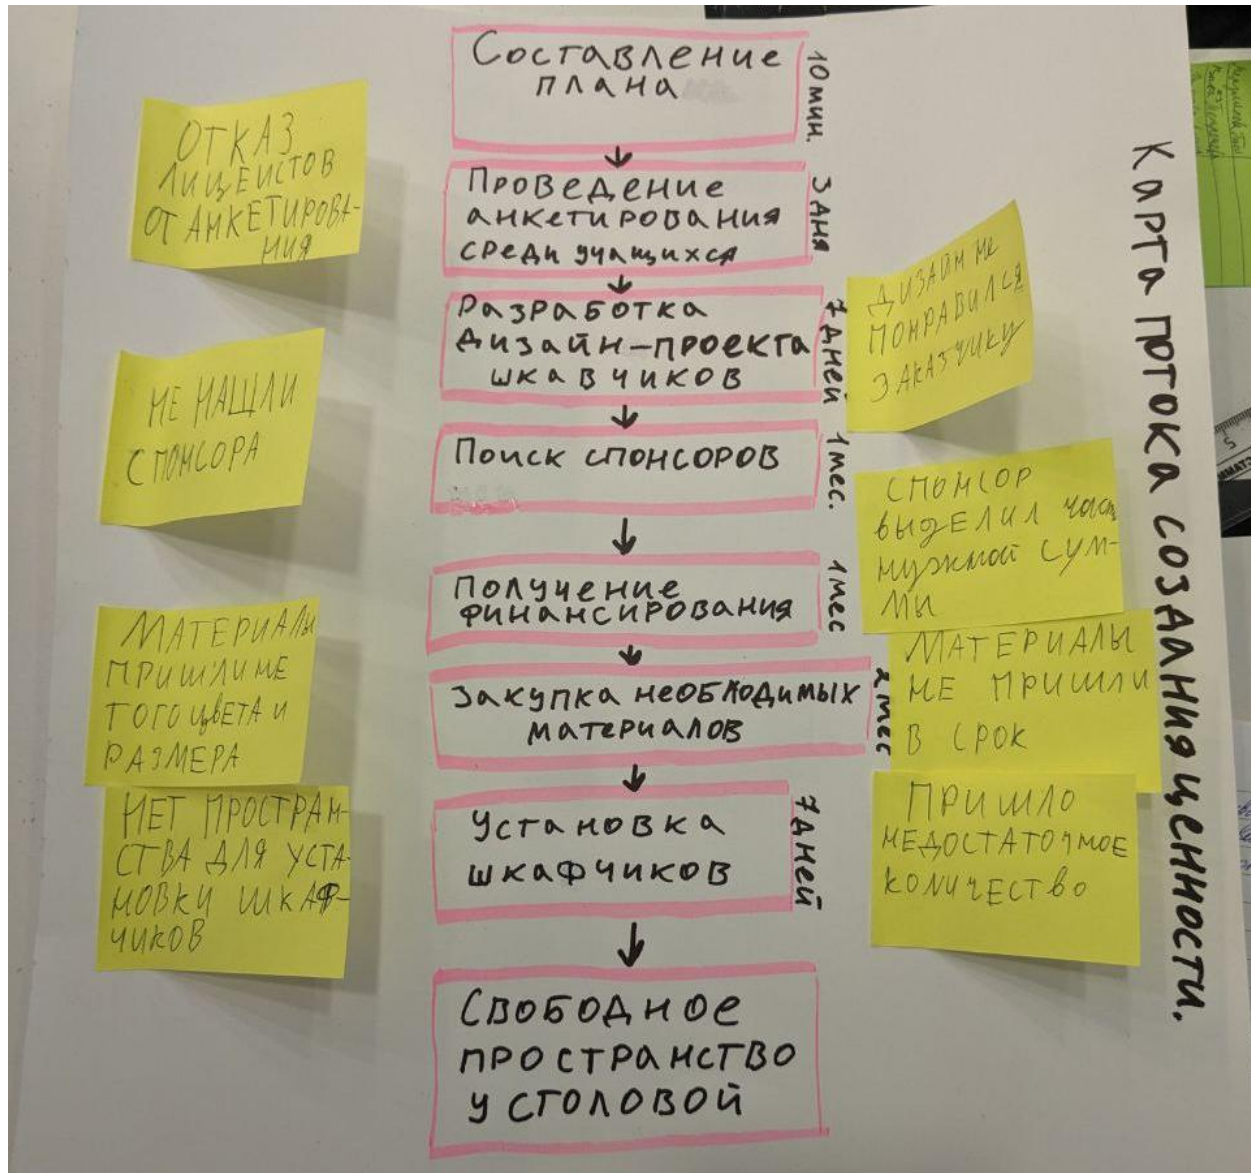 Карта потока создания ценности.
Составление
плана
10 мин.
Проведение
анкетирования
среди учащихся
3 дня
Разработка
дизайн-проекта
шкавчиков
7 дней
Поиск спонсоров
1 мес.
Получение
финансирования
1 мес
Закупка необходимых
материалов
2 мес
Установка
шкафчиков
7 дней
Свободное
пространство
у столовой
ОТКАЗ
ЛИЦЕИСТОВ
ОТ АНКЕТИРОВА-
НИЯ
НЕ НАШЛИ
СПОНСОРА
МАТЕРИАЛЫ
ПРИШЛИ НЕ
ТОГО ЦВЕТА И
РАЗМЕРА
НЕТ ПРОСТРАН-
СТВА ДЛЯ УСТА-
НОВКИ ШКАФ-
ЧИКОВ
ДИЗАЙН НЕ
ПОНРАВИЛСЯ
ЗАКАЗЧИКУ
СПОНСОР
ВЫДЕЛИЛ часть
нужной СУМ-
МЫ
МАТЕРИАЛЫ
НЕ ПРИШЛИ
В СРОК
ПРИШЛО
НЕДОСТАТОЧНОЕ
КОЛИЧЕСТВО
5